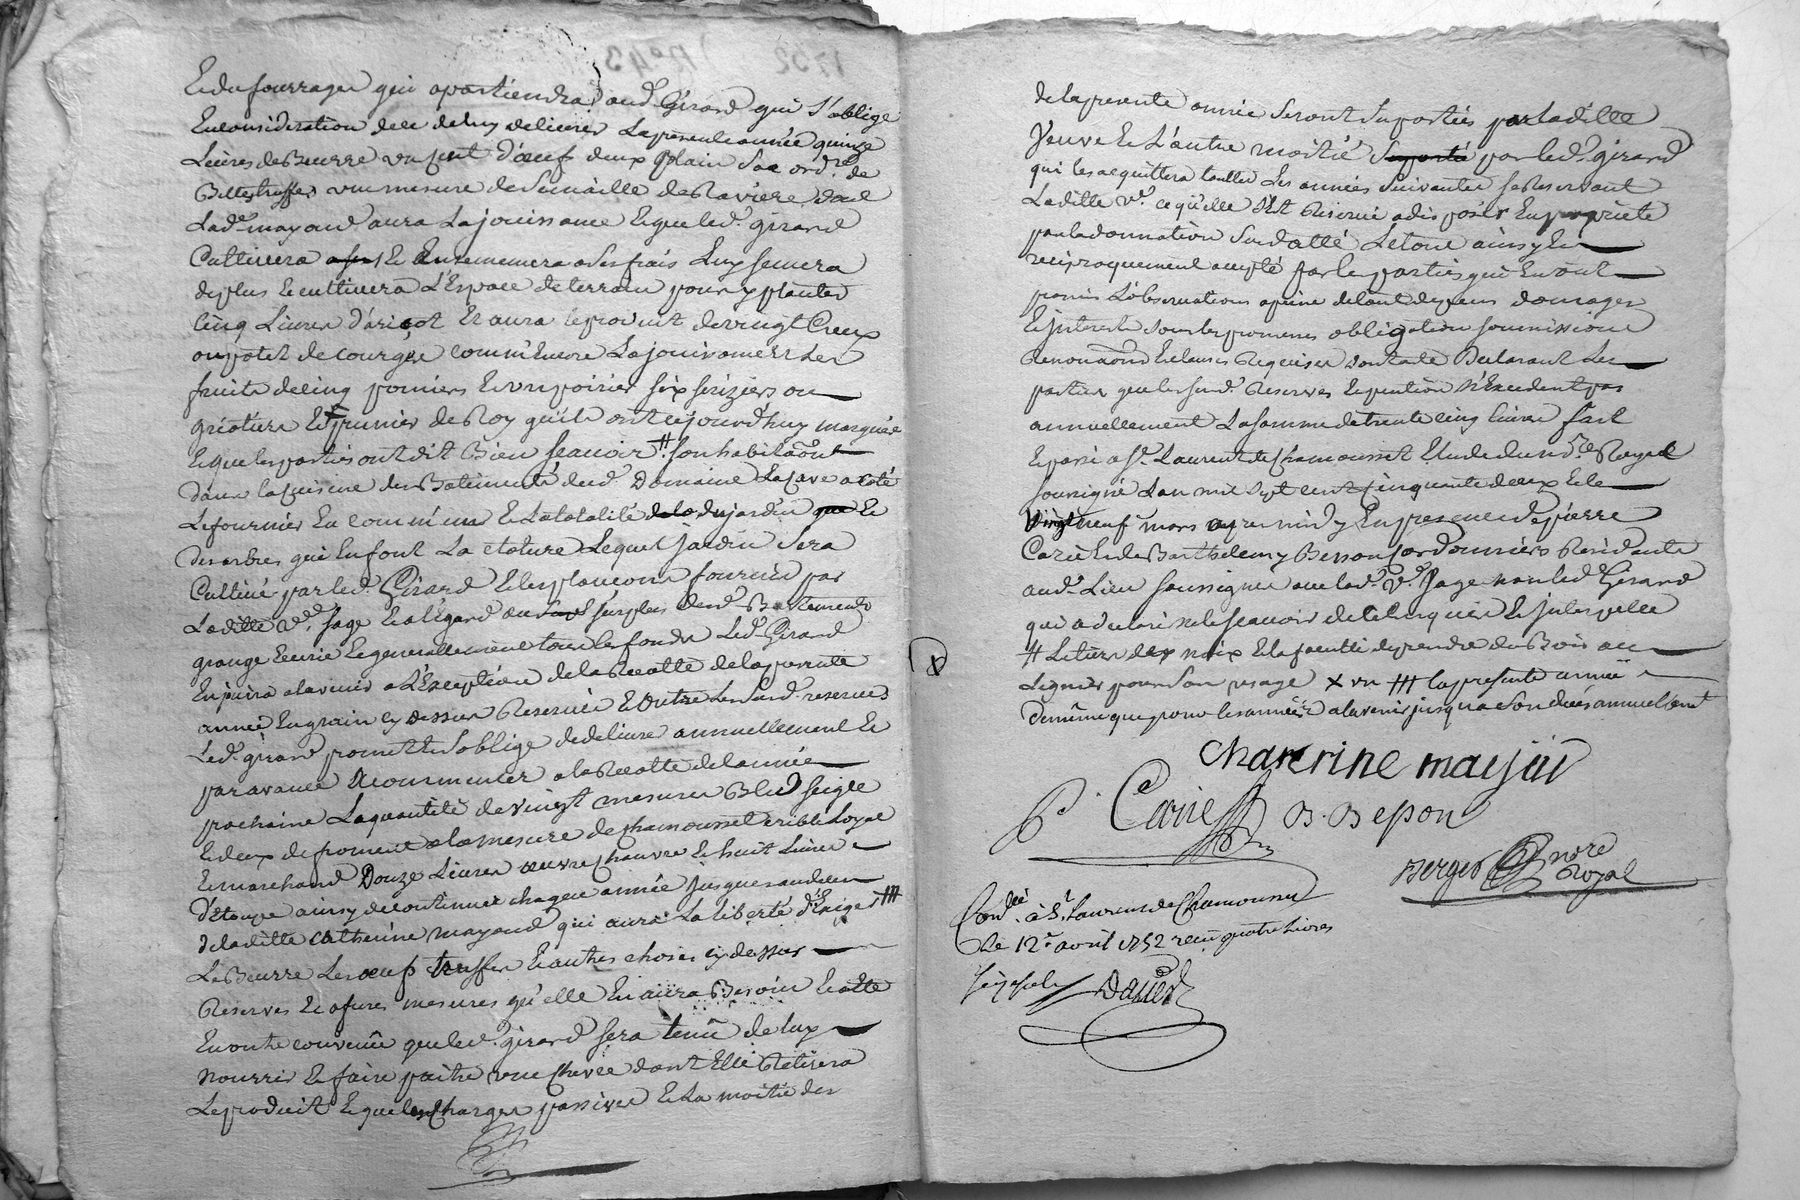 Et du fourrage qui apartiendra aud. Girard qui s'oblige
En consideration de ce de luy delivrer la presente année quinze
Livres de Beurre un cent d'oeufs deux plain sac ord.re de
Bellestruffes une mesure de semaille de Raviere dont
Lad.e mayoud aura la jouissance Et que led. girard
Cultivera Et Ensemencera a ses frais Luy semera
de plus Et cultivera L'Espace de terrain pour y planter
Cinq Livres d'aricot Et aura le produit de vingt Creux
ou potet de courge comm'Encore La jouissance Les
fruits de cinq pomiers Et un poirier six seriziers ou
griotiers Et prunier de Roy qu'ils ont cejourd'huy marquée
Et que les parties ont dit Bien scavoir # son habitaon
dans la cuisine des Batiments dud. Domaine La Cave a coté
Le fournier En commun Et La totalité du jardin Et
des arbres qui En font La cloture Lequel jardin sera
Cultivé par led. Girard Et les plançons fournis par
Laditte v.e page Et a l'Egard du surplus desd. Bastiments
grange Ecurie Et generallement tous les fonds Led. Girard
En jouira a l'avenir a L'Exception de la Recolte de la presente
année En grain cy dessus Reservée Et Outre Les susd. reserves
Led. girard promet Et s'oblige de delivrer annuellement Et
par avance A commencer a la Recolte de l'année
prochaine La quantité de vingt mesures Bled seigle
Et deux de froment a la mesure de Chamousset crible Loyal
Et marchand Douze Livres oeuvre chanvre Et huit Livres
d'étoupe ainsy de continuer chaque année jusques au deces
de laditte Catherine mayoud qui aura La liberté d'Exiger ###
Le Beurre Les oeufs truffes Et autres choses cy dessus
Reservés Et a fures mesures qu'elle En aura Besoin Et
En outre convenû que led. girard sera tenû de luy
Nourrir Et faire paitre une chevre dont Elle Retirera
Le produit Et que les charges passives Et La moitié des
de la presente année Seront suportées par laditte
Veuve Et L'autre moitié par led. girard
qui les acquittera touttes Les années suivantes se Reservant
Laditte v.e ce qu'elle s'Est Reservé a disposer En proprieté
par la donnation susdatté Le tout ainsy Et
reciproquement accepté par les parties qui En ont
promis L'observations a peine de tout depens domages
Et Interests sous les promesses obligation soumissions
Renonciaons Et clauses Requises Declarant Les
parties que les susd. Reserves Et pention N'Excedent pas
annuellement La somme de trente cinq livres fait
Et passé a St. Laurent de Chamousset Etude du no.re Royal
soussigné L'an mil sept cent cinquante deux Et le
vingt neuf mars apres midy En presence de pierre
Carié Et de Barthelemy Besson cordonniers Residants
aud. Lieu soussignés avec lad. v.e page non led. Girard
qui a declaré ne le scavoir de ce Enquis Et Interpellé
# Le tiers des noix Et la faculté de prendre du Bois au
Legnier pour son usage X un ### la presente année
de même que pour les années a l'avenir jusqu'a son deces annuellement
Chaterine mayoud
P. Carié B. Beson
Berger no.re Royal
Con.lé à St. Laurens de Chamousset
Le 12.e avril 1752 receu quatre livres
Dauer